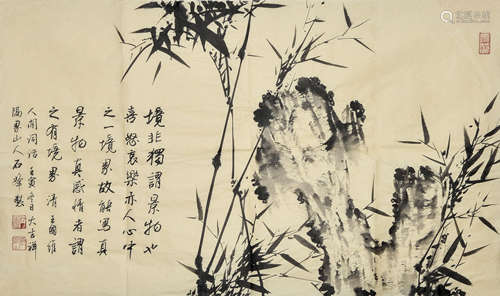 境非獨謂景物也
喜怒哀樂亦人心中
之一境界故能寫真
景物真感情者謂
之有境界 清 王國維
人間詞話 壬寅 日大吉祥
山人石